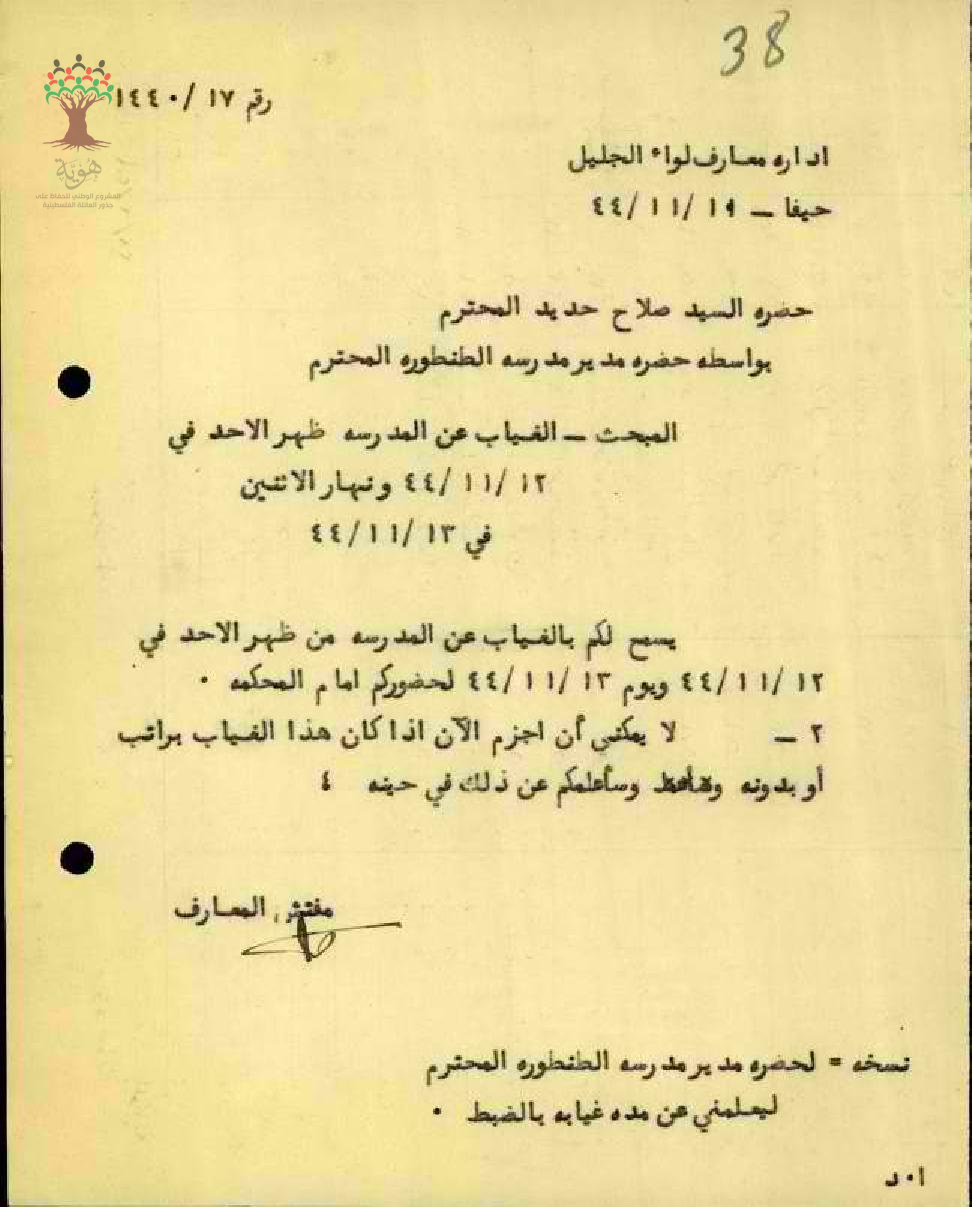 38
رقم ١٧ /١٤٤٠
هُوِيَّة
المشروع الوطني للحفاظ على
جذور العائلة الفلسطينية
اداره معارف لواء الجليل
حيفا – /١١/ ٤٤
حضره السيد صلاح حديد المحترم
بواسطه حضره مدير مدرسه الطنطوره المحترم
المبحث – الغياب عن المدرسه ظهر الاحد في
١٢ /١١/ ٤٤ ونهار الاثنين
في ١٣ /١١/ ٤٤
يسمح لكم بالغياب عن المدرسه من ظهر الاحد في
١٢ /١١/ ٤٤ ويوم ١٣ /١١/ ٤٤ لحضوركم امام المحكمه ٠
٢ – لا يمكنني أن اجزم الآن اذا كان هذا الغياب براتب
أو بدونه وسأعلمكم عن ذلك في حينه ٤
مفتش المعارف
نسخه = لحضره مدير مدرسه الطنطوره المحترم
ليعلمني عن مده غيابه بالضبط ٠
ا٠د